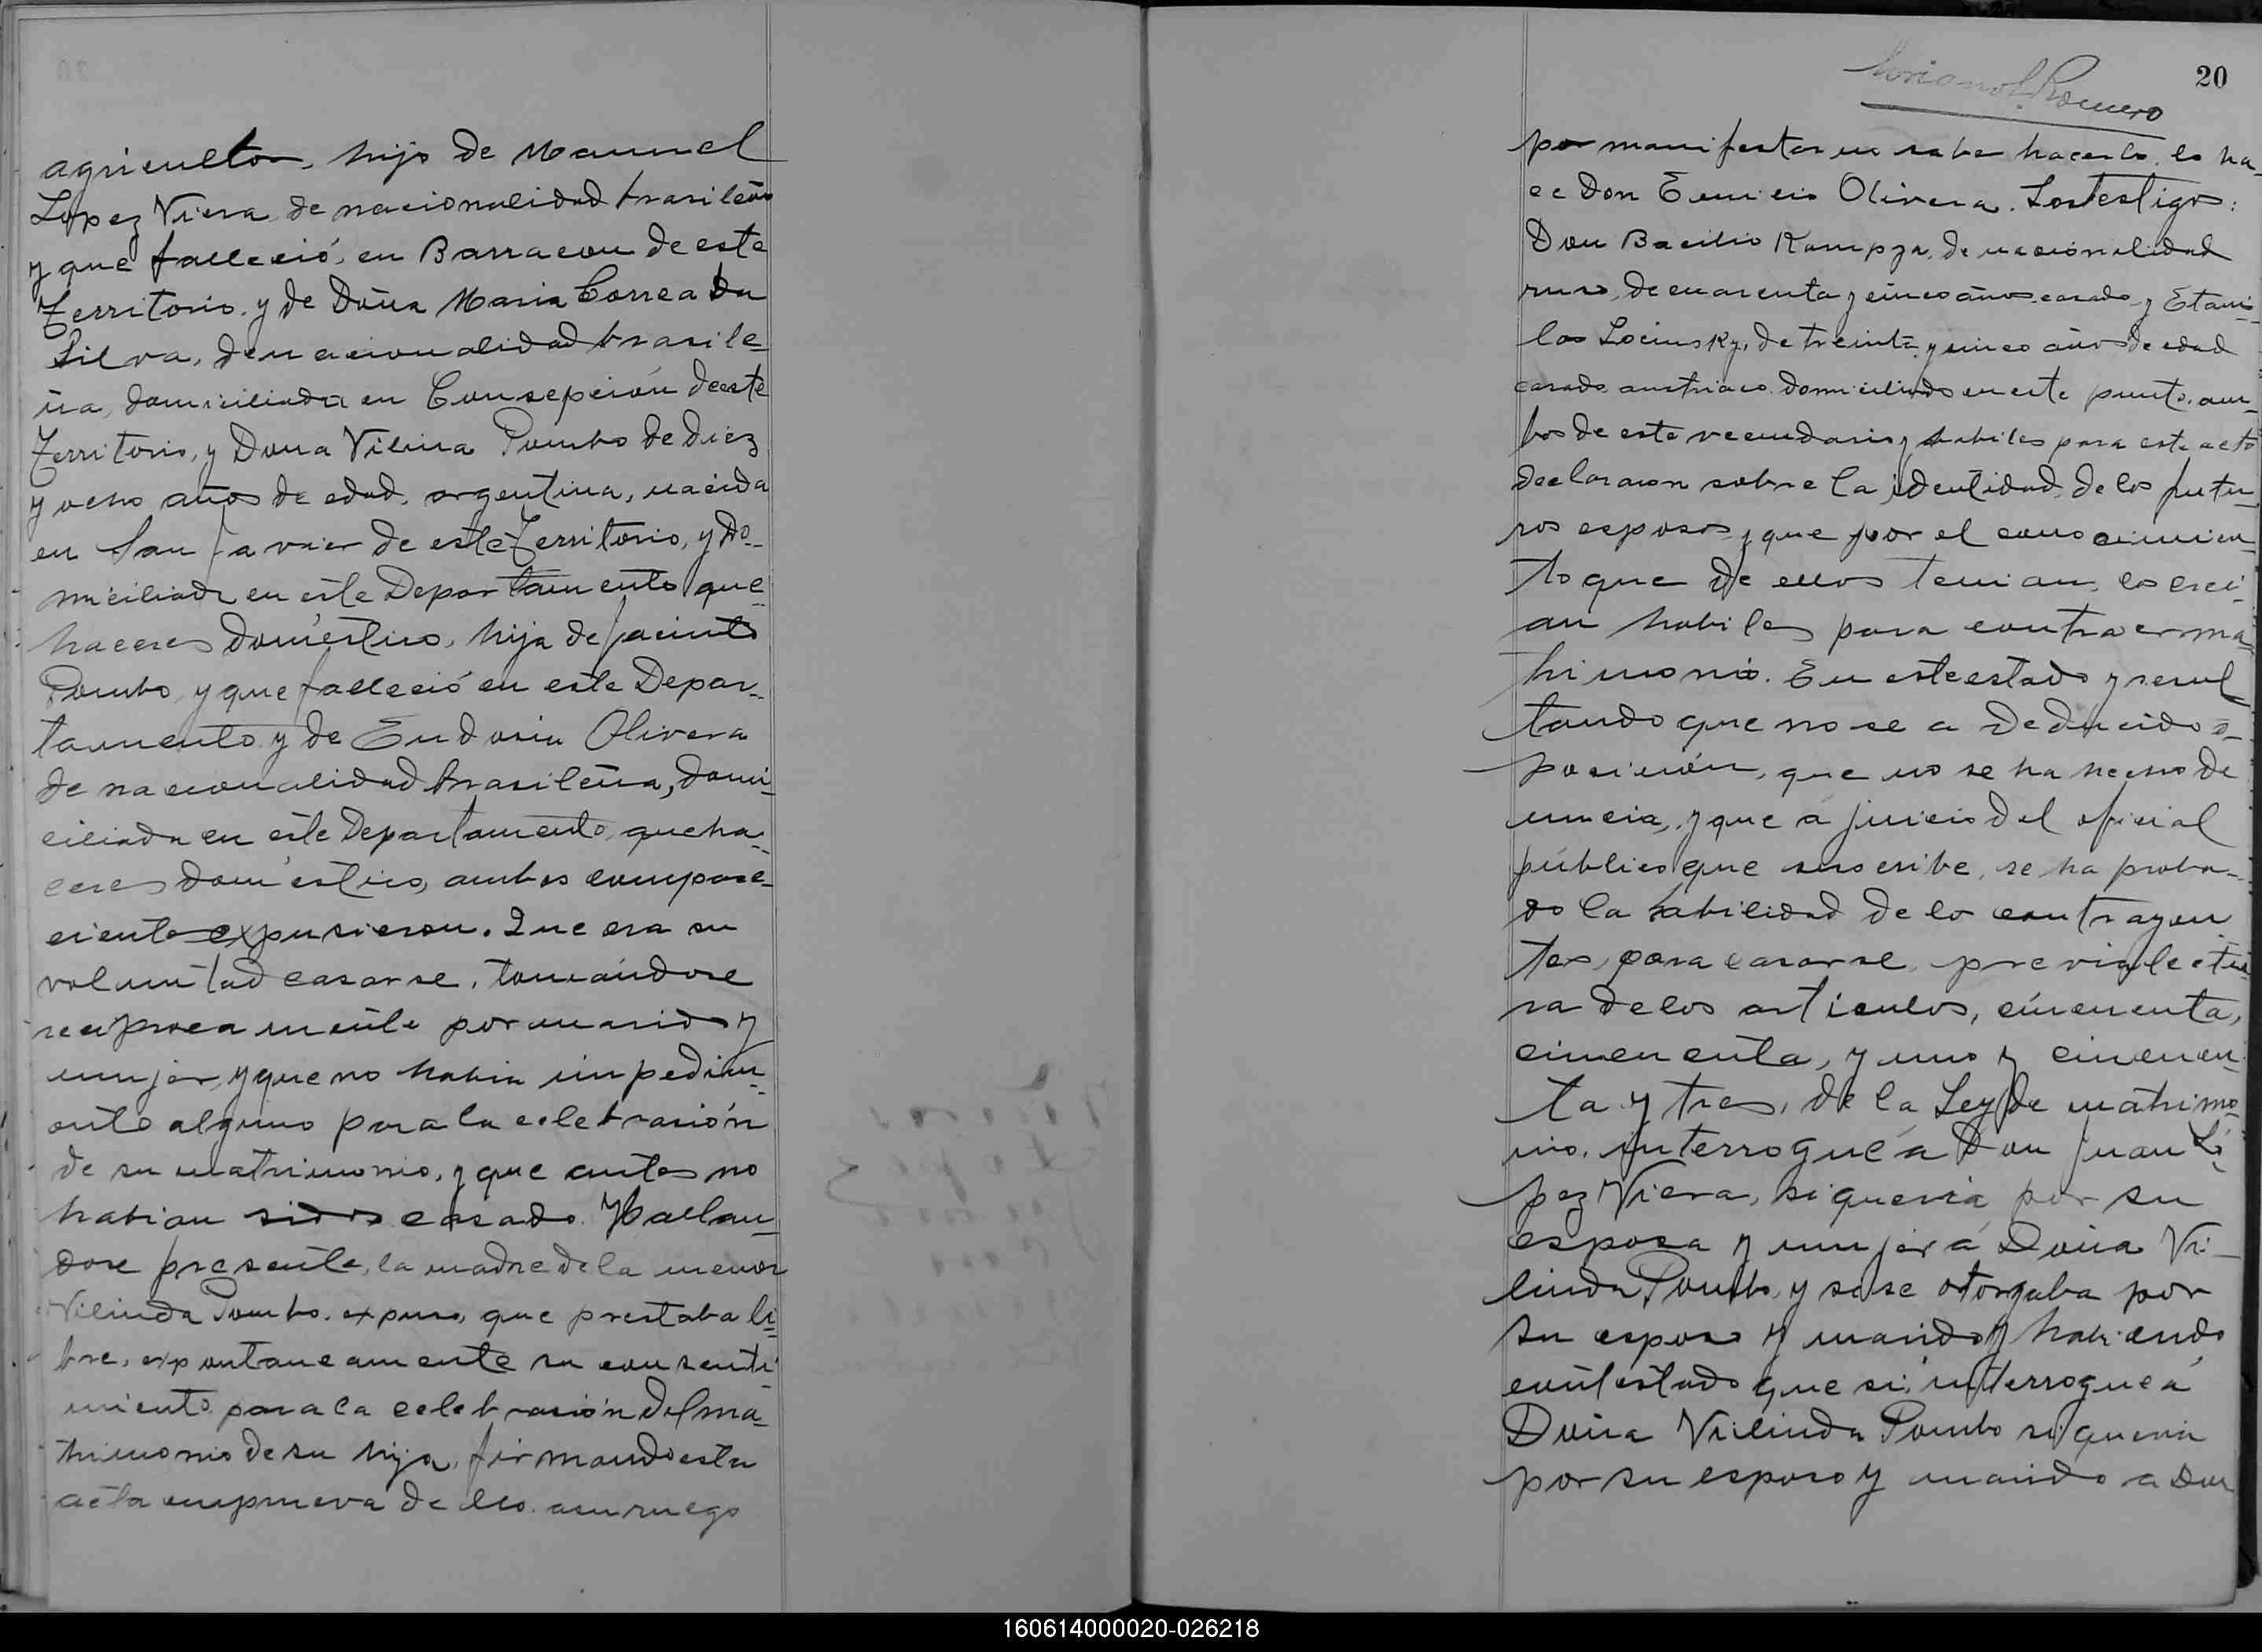 agricultor, hijo de Manuel
Lopez Viera de nacionalidad brasileña
y que falleció, en Barracon de este
Territorio. y de Doña Maria Correa Da
Silva, de nacionalidad brasile-
ña, domiciliada en Consepción de este
Territorio, y Dona Vilina Pombo de diez
y ocho años de edad, argentina, nacida
en San Javier de este Territorio, y do-
miciliada en este Departamento que-
haceres domestico, hija de Jacinto
Pombo, y que falleció en este Depar-
tamento y de Eudosia Olivera
de nacionalidad brasileña, domi-
ciliada en este Departamento, queha-
ceres domestico, ambos compare-
ciente expusieron. Que era su
voluntad casarse, tomándose
reciprocamente por marido y
mujer, y que no habia impedim-
ento alguno para la celebrasión
de su matrimonio, y que antes no
habian sidos casado. Hallan-
dose presente, la madre de la menor
Vilinda Pombo. expuso, que prestaba li-
bre, expontaneamente su consenti-
miento para la celebrasión del ma-
trimonio de su hija, firmando esta
acta en prueva de ello. a su ruego
20
Romero
por manifestar no saber hacerlo, lo ha-
ce Don Emilio Olivera. Los testigos:
Don Bacilio Kampza, de nacionalidad
ruso, de cuarenta y cinco años casado y Etanis-
lao Locinsky, de treinta y cinco años de edad
casado austriaco domiciliado en este punto, am-
bos de este vecindario y habiles para este acto
declararon sobre la identidad de los futu-
ros esposos y que por el conocimien-
to que de ellos tenian, los crei-
an habiles para contraer ma-
trimonio. En este estado y resul
tando que no se a deducido o-
posición, que no se ha hecho de
nuncia, y que a juicio del oficial
público que suscribe, se ha proba-
do la habilidad de lo contrayen
tes, para casarse, previa lectu-
ra de los articulos, cincuenta,
cincuenta, y uno y cincuen-
ta y tres, de la Ley de matrimo-
nio. interrogué a Don Juan Ló-
pez Viera, si queria por su
esposa y mujer á Doña Vi-
linda Pombo, y si se otorgaba por
su esposo y marido y habiendo
contestado que si, interrogue á
Doña Vilinda Pombo si queria
por su esposo y marido a Don
160614000020-026218